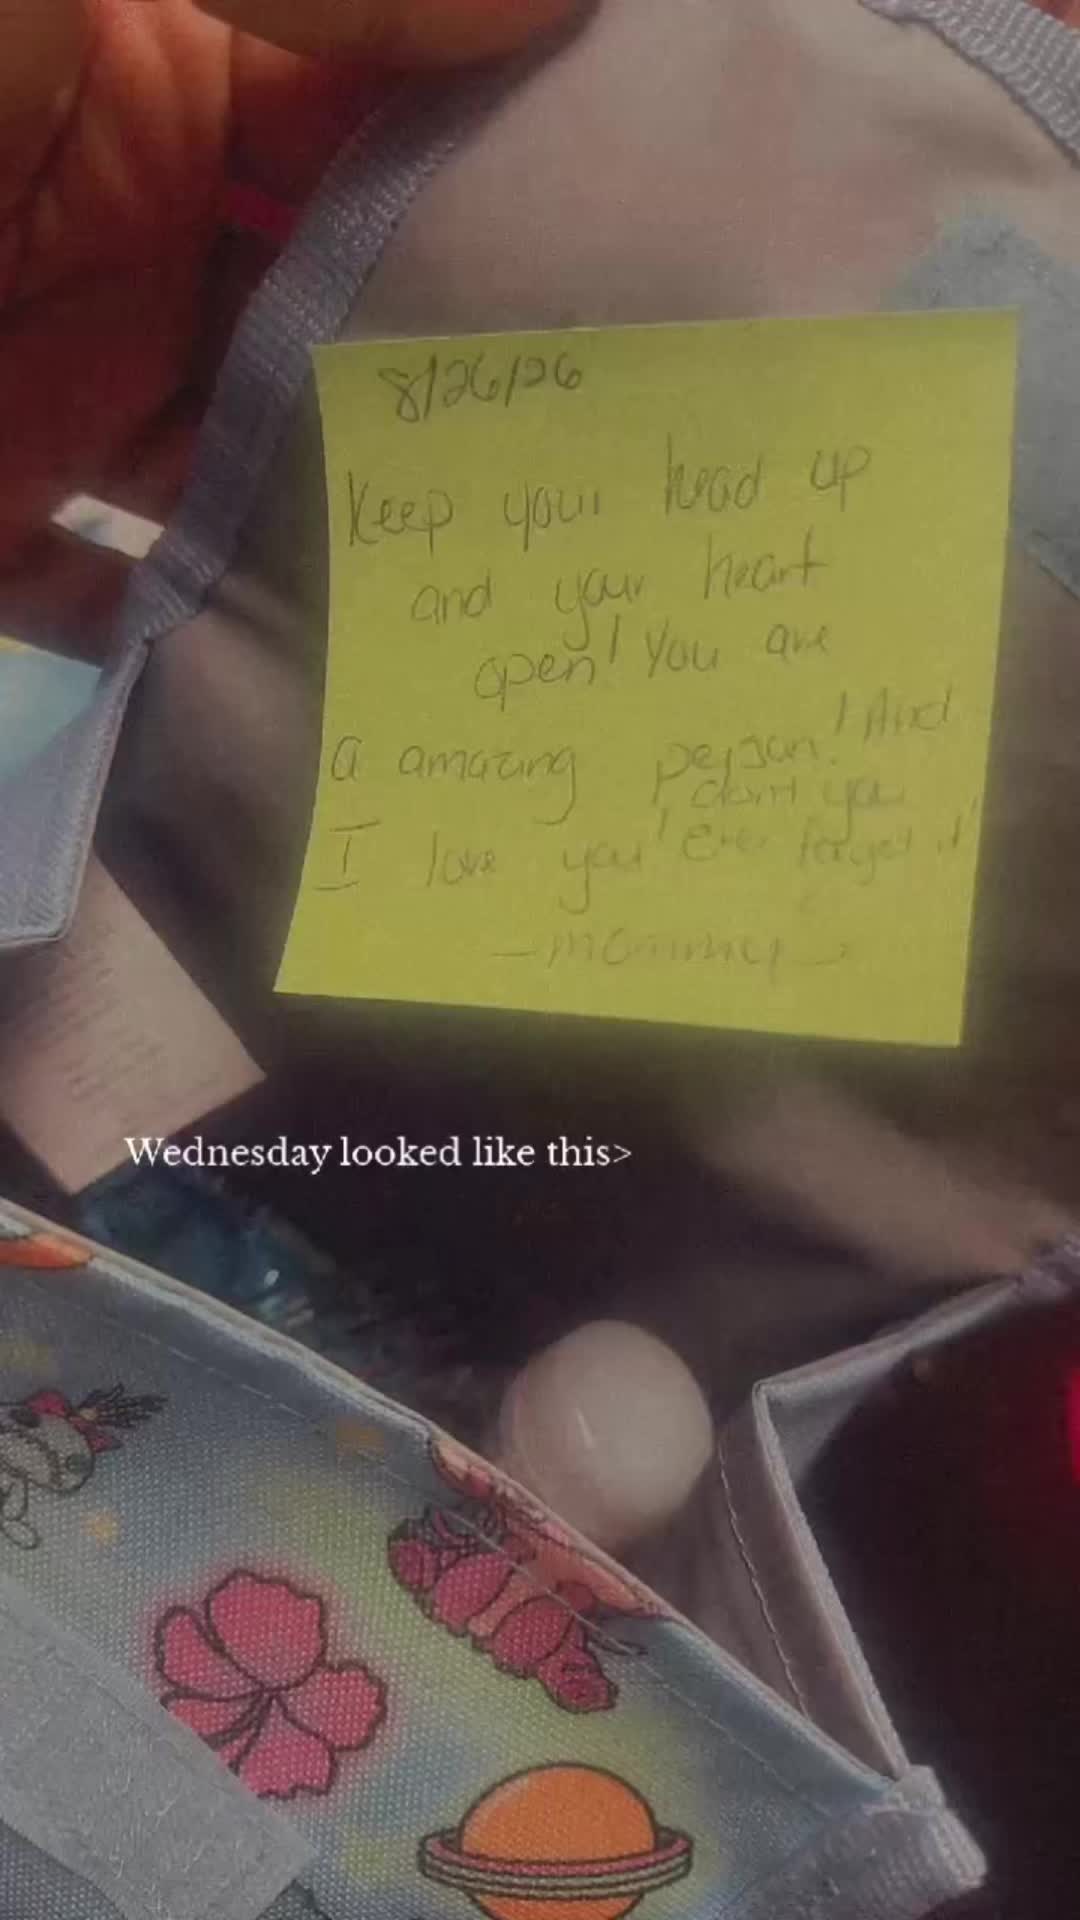 8/26/26
Keep your head up
and your heart
open! You are
a amazing person! And
don't you
I love you! ever forget it!
- Mommy -
Wednesday looked like this>